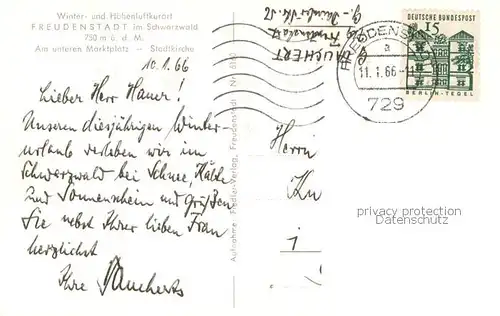 Winter- und Höhenluftkurort
FREUDENSTADT im Schwarzwald
750 m ü. d. M.
Am unteren Marktplatz - Stadtkirche
10.1.66
Lieber Herr Hauer!
Unseren diesjährigen Winter-
urlaub verleben wir im
Schwarzwald bei Schnee, Kälte
und Sonnenschein und grüßen
Sie nebst Ihrer lieben Frau
herzlichst
Ihre Saucherts
Aufnahme: Fiedler-Verlag, Freudenstadt Nr.
SAUCHERT
FREUDENST
a
11.1.66
729
DEUTSCHE BUNDESPOST
15
BERLIN-TEGEL
Herrn
privacy protection
Datenschutz